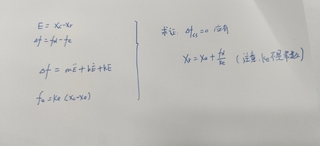 E = Xc - Xr
Δf = fd - fe
Δf = mË + bĖ + kE
fe = ke (Xc - Xe)
求证 Δfss = 0 应有
Xr = Xe + fd/ke (注意, ke不是常数)